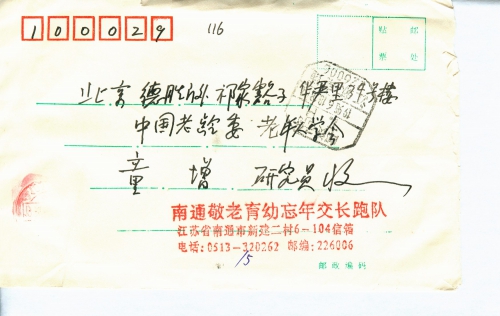 100029
116
贴 邮
票 处
北京德胜门外祁家豁子华严里34号楼
中国老龄委 老年学会
童增 研究员收
南通敬老育幼忘年交长跑队
江苏省南通市新建二村6-104信箱
电话:0513-320262 邮编:226006
15
邮政编码